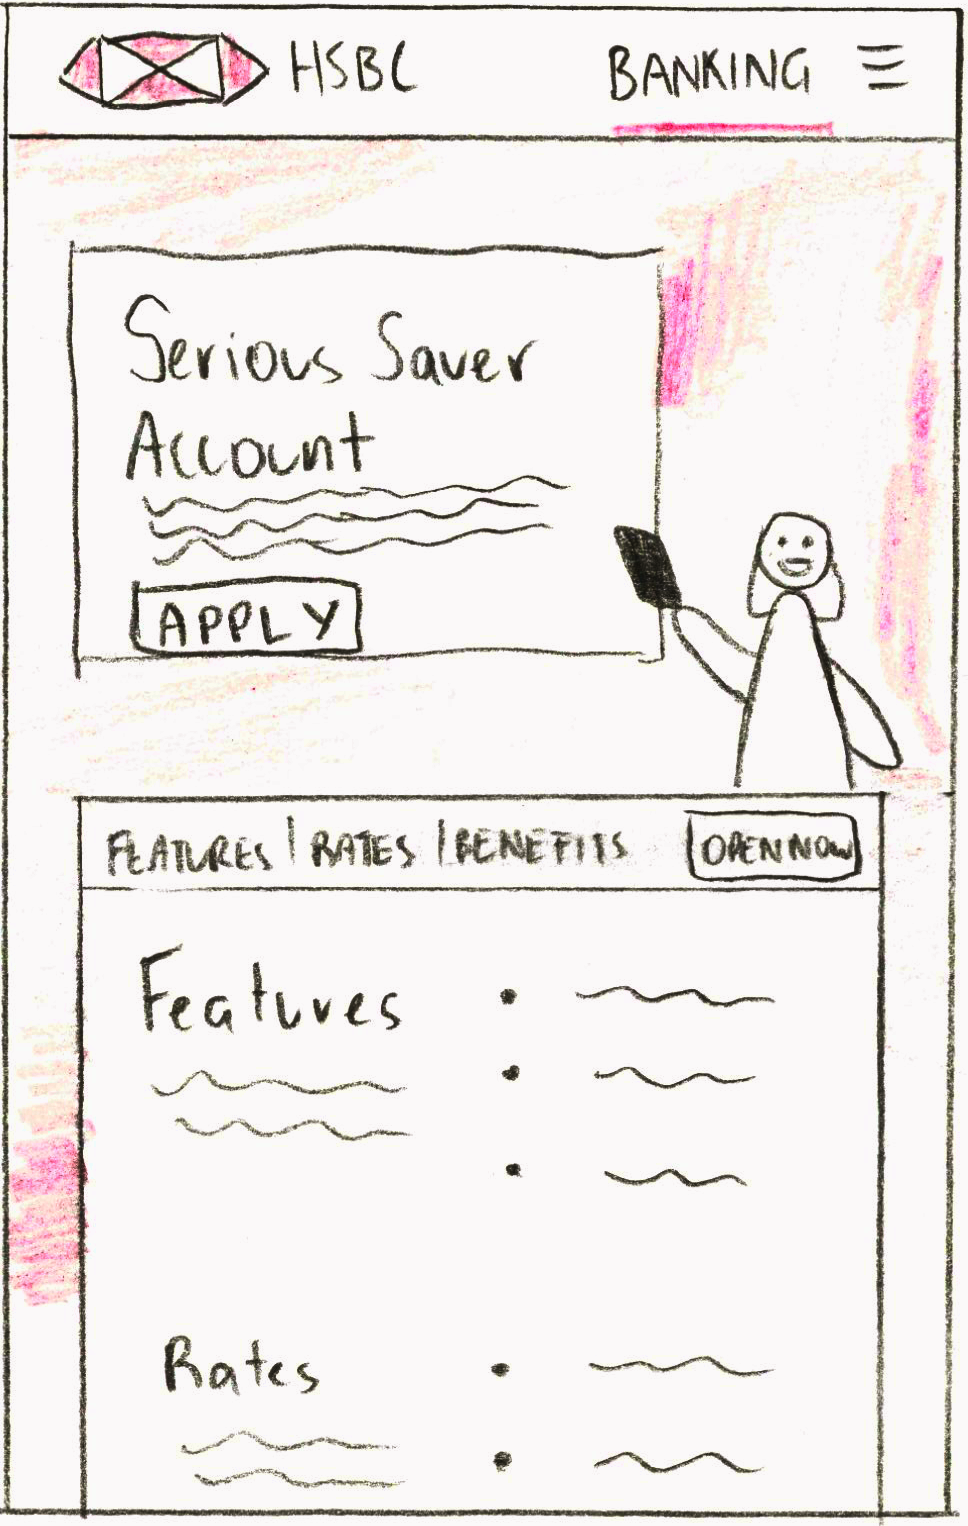 HSBC
BANKING
Serious Saver
Account
APPLY
FEATURES | RATES | BENEFITS
OPEN NOW
Features
Rates